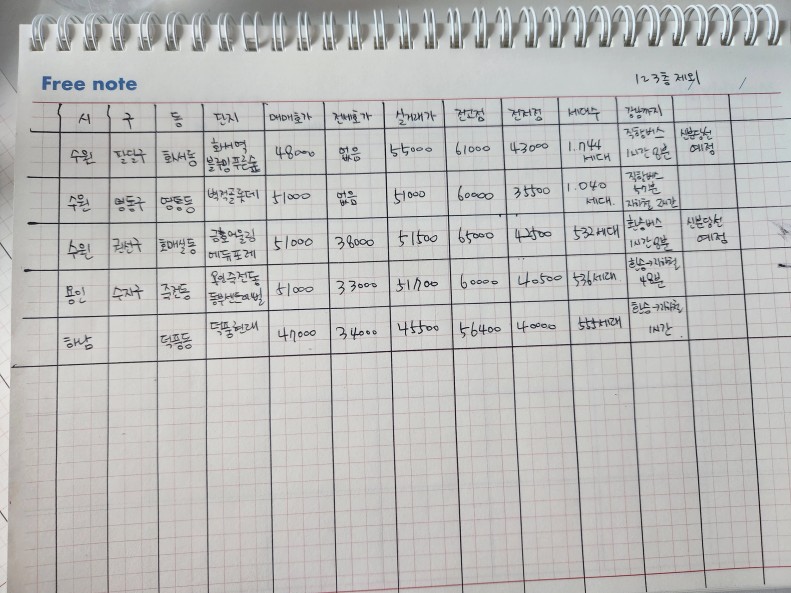 Free note
123층 제외
시 구 동 단지 매매호가 전세호가 실거래가 전고점 전저점 세대수 강남까지
수원 팔달구 화서동 화서역 블루밍푸른숲 48000 없음 55000 61000 43000 1.744 세대 직행버스 1시간 8분 신분당선 예정
수원 영통구 영통동 벽적골롯데 51000 없음 51000 60000 35500 1.040 세대 직행버스 57분 지하철 2시간
수원 권선구 호매실동 금호어울림 에듀포레 51000 38000 51500 65000 42500 532세대 환승버스 1시간 8분 신분당선 예정
용인 수지구 죽전동 51000 33000 51700 60000 40500 536세대 환승→지하철 48분
하남 덕풍동 덕풍현대 47000 34000 45500 56400 40000 555세대 환승→지하철 1시간